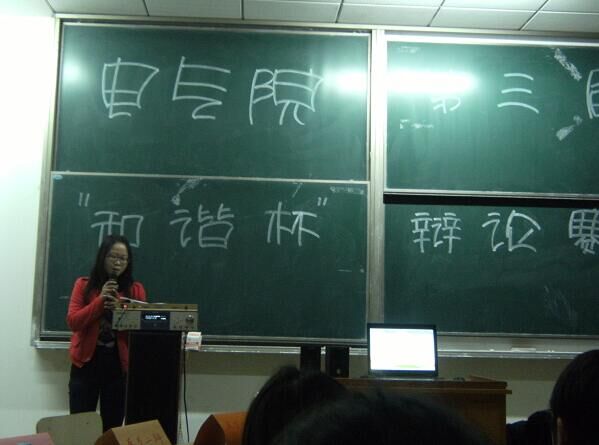 电气院
第三届
"和谐杯"
辩论赛